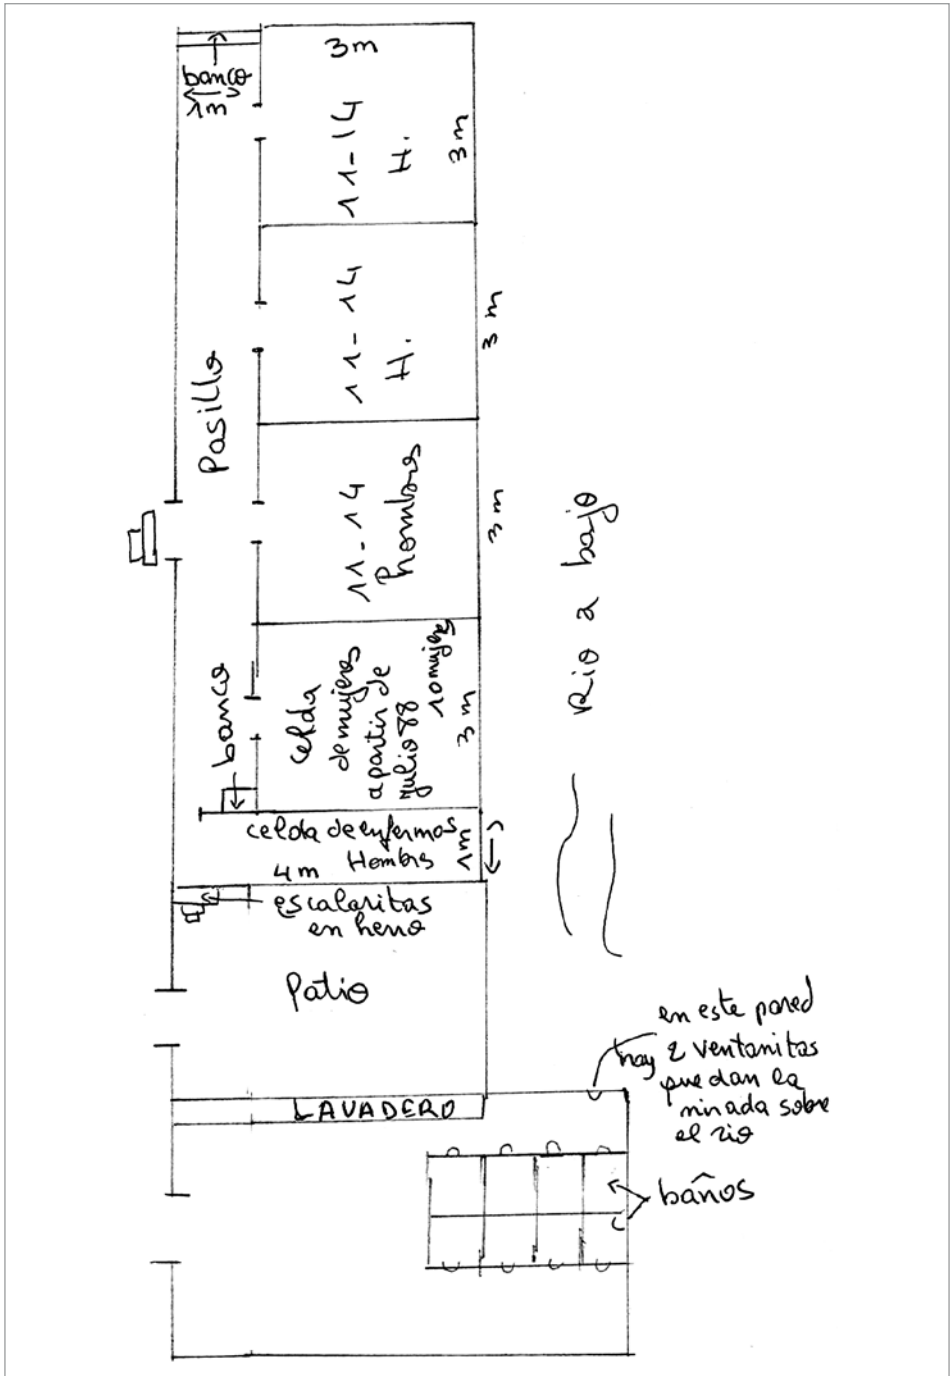 3m
banco
1m
11-14
H.
3m
11-14
H.
3m
Pasillo
11-14
hombres
3m
banco
celda
de mujeres
a partir de
julio 88
10 mujeres
3m
Rio a bajo
celda de enfermos
Hombres
4m
1m
escalaritas
en hierro
Patio
en este pared
hay 2 ventanitas
que dan la
mirada sobre
el rio
LAVADERO
baños